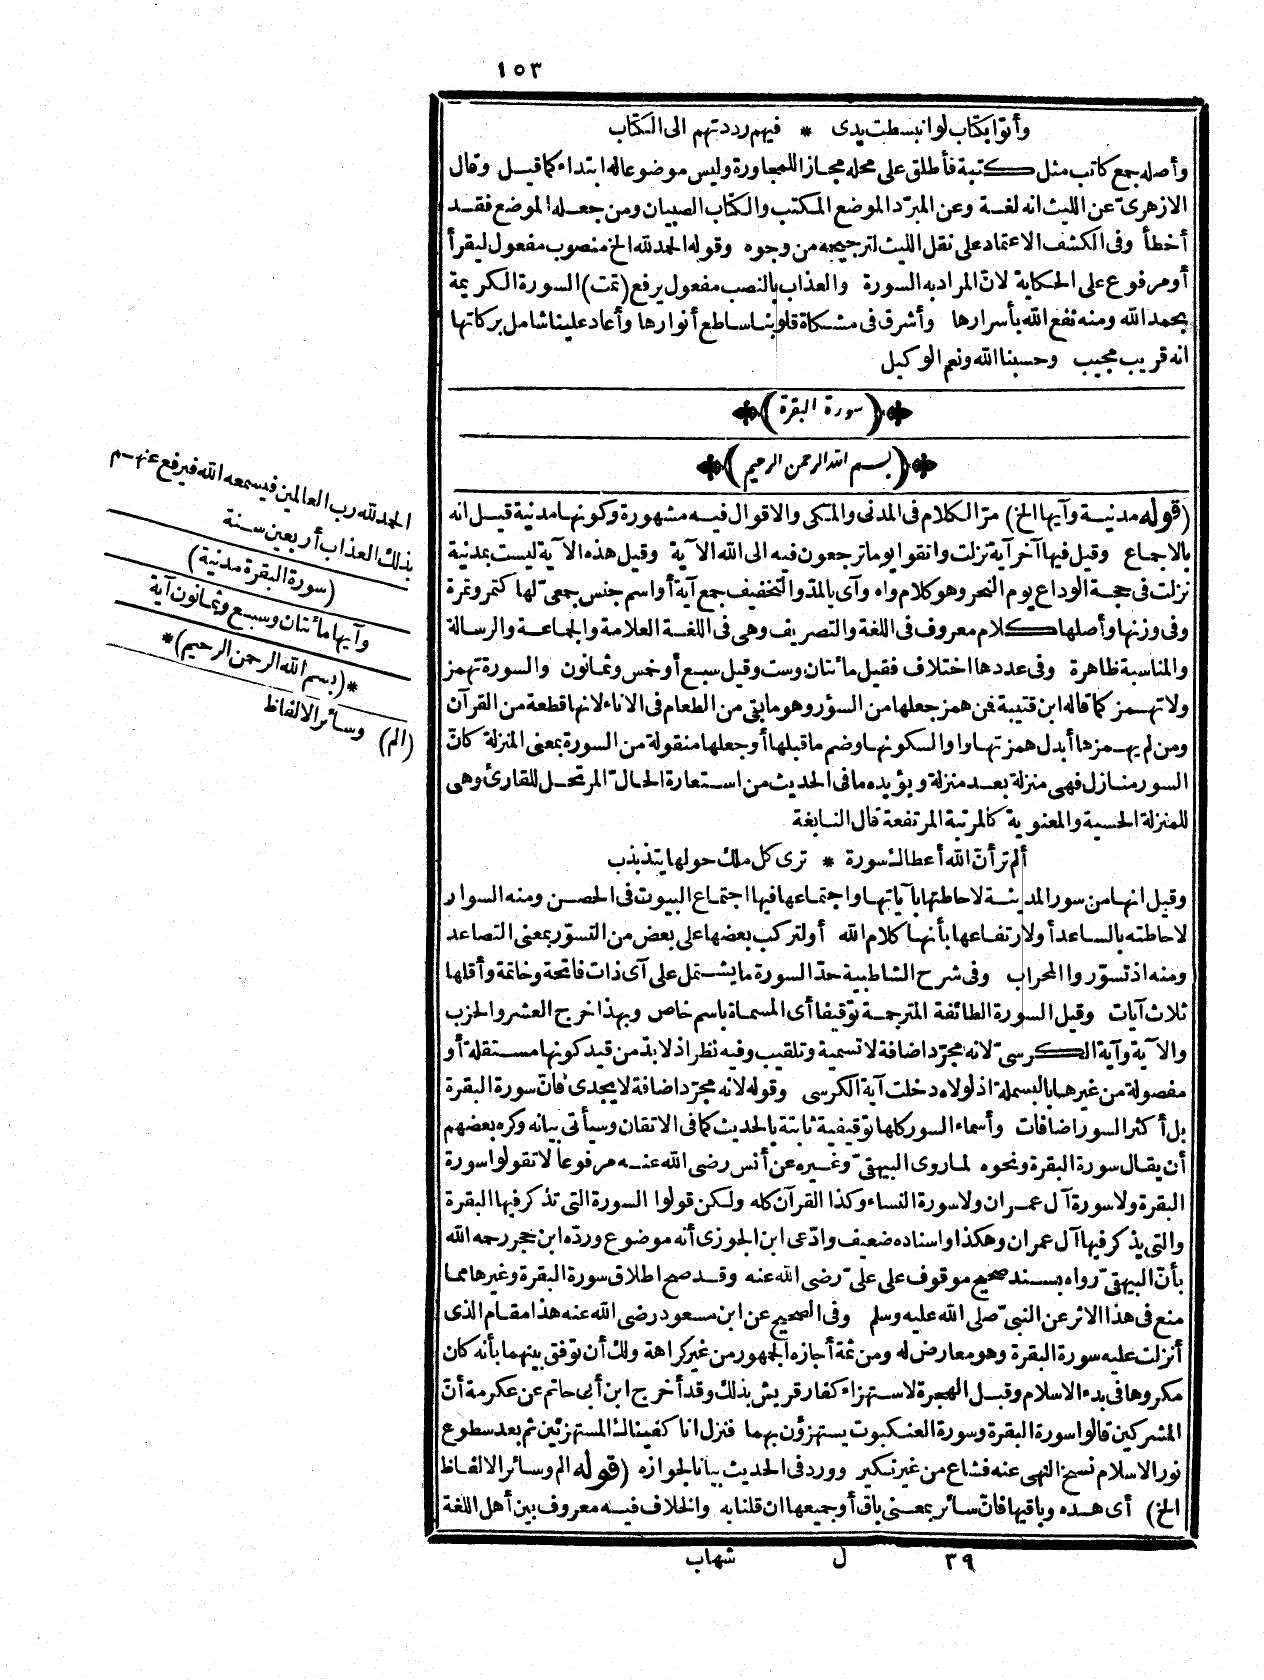 ١٥٣
وأتوا بكتاب لو انبسطت يدى * فيهم رددتهم الى الكتاب
وأصله جمع كاتب مثل كتبة فأطلق على محله مجازا للمجاورة وليس موضوعا له ابتداء كما قيل وقال
الازهرىّ عن الليث انه لغة وعن المبرّد الموضع المكتب والكتاب الصبيان ومن جعله الموضع فقد
أخطأ وفى الكشف الاعتماد على نقل الليث لترجيحه من وجوه وقوله الحمد لله الخ منصوب مفعول ليقرأ
أو مرفوع على الحكاية لانّ المراد به السورة والعذاب بالنصب مفعول يرفع (تمت) السورة الكريمة
بحمد الله ومنه نفع الله بأسرارها وأشرق فى مشكاة قلوبنا ساطع أنوارها وأعاد علينا شامل بركاتها
انه قريب مجيب وحسبنا الله ونعم الوكيل
(سورة البقرة)
(بسم الله الرحمن الرحيم)
(قوله مدنية وآيها الخ) مرّ الكلام فى المدنى والمكى والاقوال فيه مشهورة وكونها مدنية قيل انه
بالاجماع وقيل فيها آخر آية نزلت واتقوا يوما ترجعون فيه الى الله الآية وقيل هذه الآية ليست بمدنية
نزلت فى حجة الوداع يوم النحر وهو كلام واه وآى بالمدّ والتخفيف جمع آية أو اسم جنس جمعىّ لها كتمر وتمرة
وفى وزنها وأصلها كلام معروف فى اللغة والتصريف وهى فى اللغة العلامة والجماعة والرسالة
والمناسبة ظاهرة وفى عددها اختلاف فقيل مائتان وست وقيل سبع أو خمس وثمانون والسورة تهمز
ولا تهمز كما قاله ابن قتيبة فمن همز جعلها من السؤر وهو ما بقى من الطعام فى الاناء لانها قطعة من القرآن
ومن لم يهمزها أبدل همزتها واوا لسكونها وضم ما قبلها أو جعلها منقولة من السورة بمعنى المنزلة كانّ
السور منازل فهى منزلة بعد منزلة ويؤيده ما فى الحديث من استعارة الحالّ المرتحل للقارئ وهى
للمنزلة الحسية والمعنوية كالمرتبة المرتفعة قال النابغة
ألم تر أنّ الله أعطاك سورة * ترى كل ملك حولها يتذبذب
وقيل انها من سور المدينة لاحاطتها بآياتها واجتماعها فيها اجتماع البيوت فى الحصن ومنه السوار
لاحاطته بالساعد أو لارتفاعها بأنها كلام الله أو لتركب بعضها على بعض من التسوّر بمعنى التصاعد
ومنه اذ تسوّروا المحراب وفى شرح الشاطبية حدّ السورة ما يشتمل على آى ذات فاتحة وخاتمة وأقلها
ثلاث آيات وقيل السورة الطائفة المترجمة توقيفا أى المسماة باسم خاص وبهذا خرج العشر والحزب
والآية وآية الكرسىّ لانه مجرّد اضافة لا تسمية وتلقيب وفيه نظر اذ لا بدّ من قيد كونها مستقلة أو
مفصولة من غيرها بالبسملة اذ لولاه دخلت آية الكرسى وقوله لانه مجرّد اضافة لا يجدى فانّ سورة البقرة
بل أكثر السور اضافات وأسماء السور كلها توقيفية ثابتة بالحديث كما فى الاتقان وسيأتى بيانه وكره بعضهم
أن يقال سورة البقرة ونحوه لما روى البيهقىّ وغيره عن أنس رضى الله عنه مرفوعا لا تقولوا سورة
البقرة ولا سورة آل عمران ولا سورة النساء وكذا القرآن كله ولكن قولوا السورة التى تذكر فيها البقرة
والتى يذكر فيها آل عمران وهكذا واسناده ضعيف وادّعى ابن الجوزى أنه موضوع وردّه ابن حجر رحمه الله
بأنّ البيهقىّ رواه بسند صحيح موقوف على علىّ رضى الله عنه وقد صح اطلاق سورة البقرة وغيرها مما
منع فى هذا الاثر عن النبىّ صلى الله عليه وسلم وفى الصحيح عن ابن مسعود رضى الله عنه هذا مقام الذى
أنزلت عليه سورة البقرة وهو معارض له ومن ثمة أجازه الجمهور من غير كراهة ولك أن توفق بينهما بأنه كان
مكروها فى بدء الاسلام وقبل الهجرة لاستهزاء كفار قريش بذلك وقد أخرج ابن أبى حاتم عن عكرمة أنّ
المشركين قالوا سورة البقرة وسورة العنكبوت يستهزؤن بهما فنزل انا كفيناك المستهزئين ثم بعد سطوع
نور الاسلام نسخ النهى عنه فشاع من غير نكير وورد فى الحديث بيانا لجوازه (قوله الم وسائر الالفاظ
الخ) أى هذه وباقيها فانّ سائر بمعنى باق أو جميعها ان قلنا به والخلاف فيه معروف بين أهل اللغة
٣٩ ل شهاب
الحمد لله رب العالمين فيسمعه الله فيرفع عنهم
بذلك العذاب أربعين سنة
(سورة البقرة مدنية)
وآيها مائتان وسبع وثمانون آية
*(بسم الله الرحمن الرحيم)*
(الم) وسائر الالفاظ